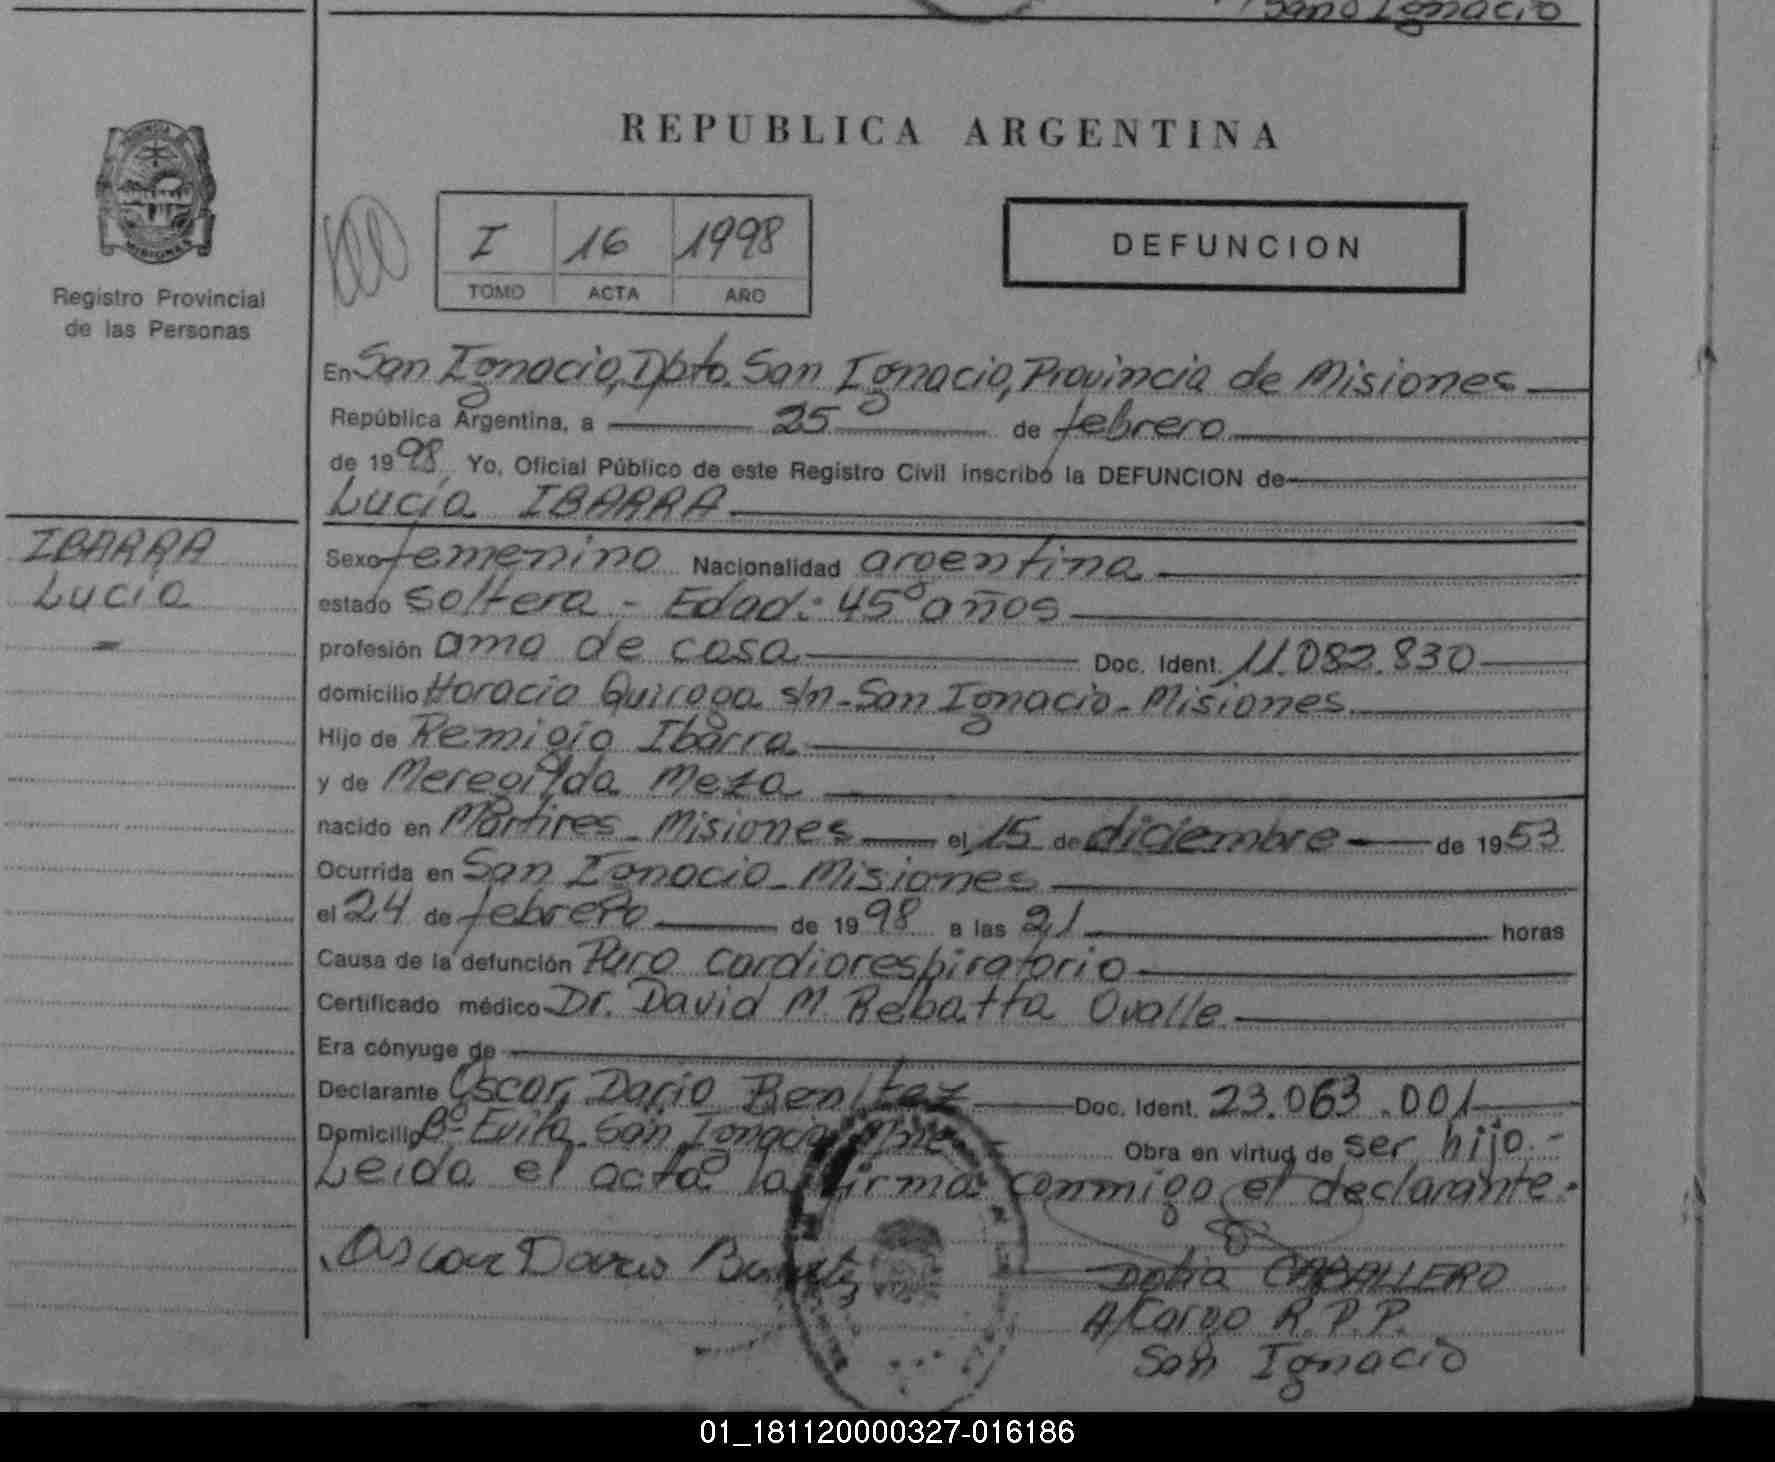 San Ignacio
REPUBLICA ARGENTINA
I 16 1998
TOMO ACTA AÑO
DEFUNCION
Registro Provincial
de las Personas
En San Ignacio, Dpto. San Ignacio, Provincia de Misiones
República Argentina, a 25 de febrero
de 1998 Yo, Oficial Público de este Registro Civil inscribo la DEFUNCION de
Lucía IBARRA
IBARRA
Lucía
Sexo femenino Nacionalidad argentina
estado soltera - Edad: 45 años
profesión ama de casa Doc. Ident. 11.082.830
domicilio Horacio Quiroga s/n - San Ignacio - Misiones
Hijo de Remigio Ibarra
y de Meregilda Meza
nacido en Mártires - Misiones el 15 de diciembre de 1953
Ocurrida en San Ignacio - Misiones
el 24 de febrero de 1998 a las 21 horas
Causa de la defunción Paro cardiorespiratorio
Certificado médico Dr. David M. Rebatta Ovalle
Era cónyuge de
Declarante Oscar Dario Benitez Doc. Ident. 23.063.001
Domicilio Bº Evita San Ignacio Mnes Obra en virtud de ser hijo.-
Leida el acta la firma conmigo el declarante.
Oscar Dario Benitez
CABALLERO
A/Cargo R.P.P.
San Ignacio
01_181120000327-016186